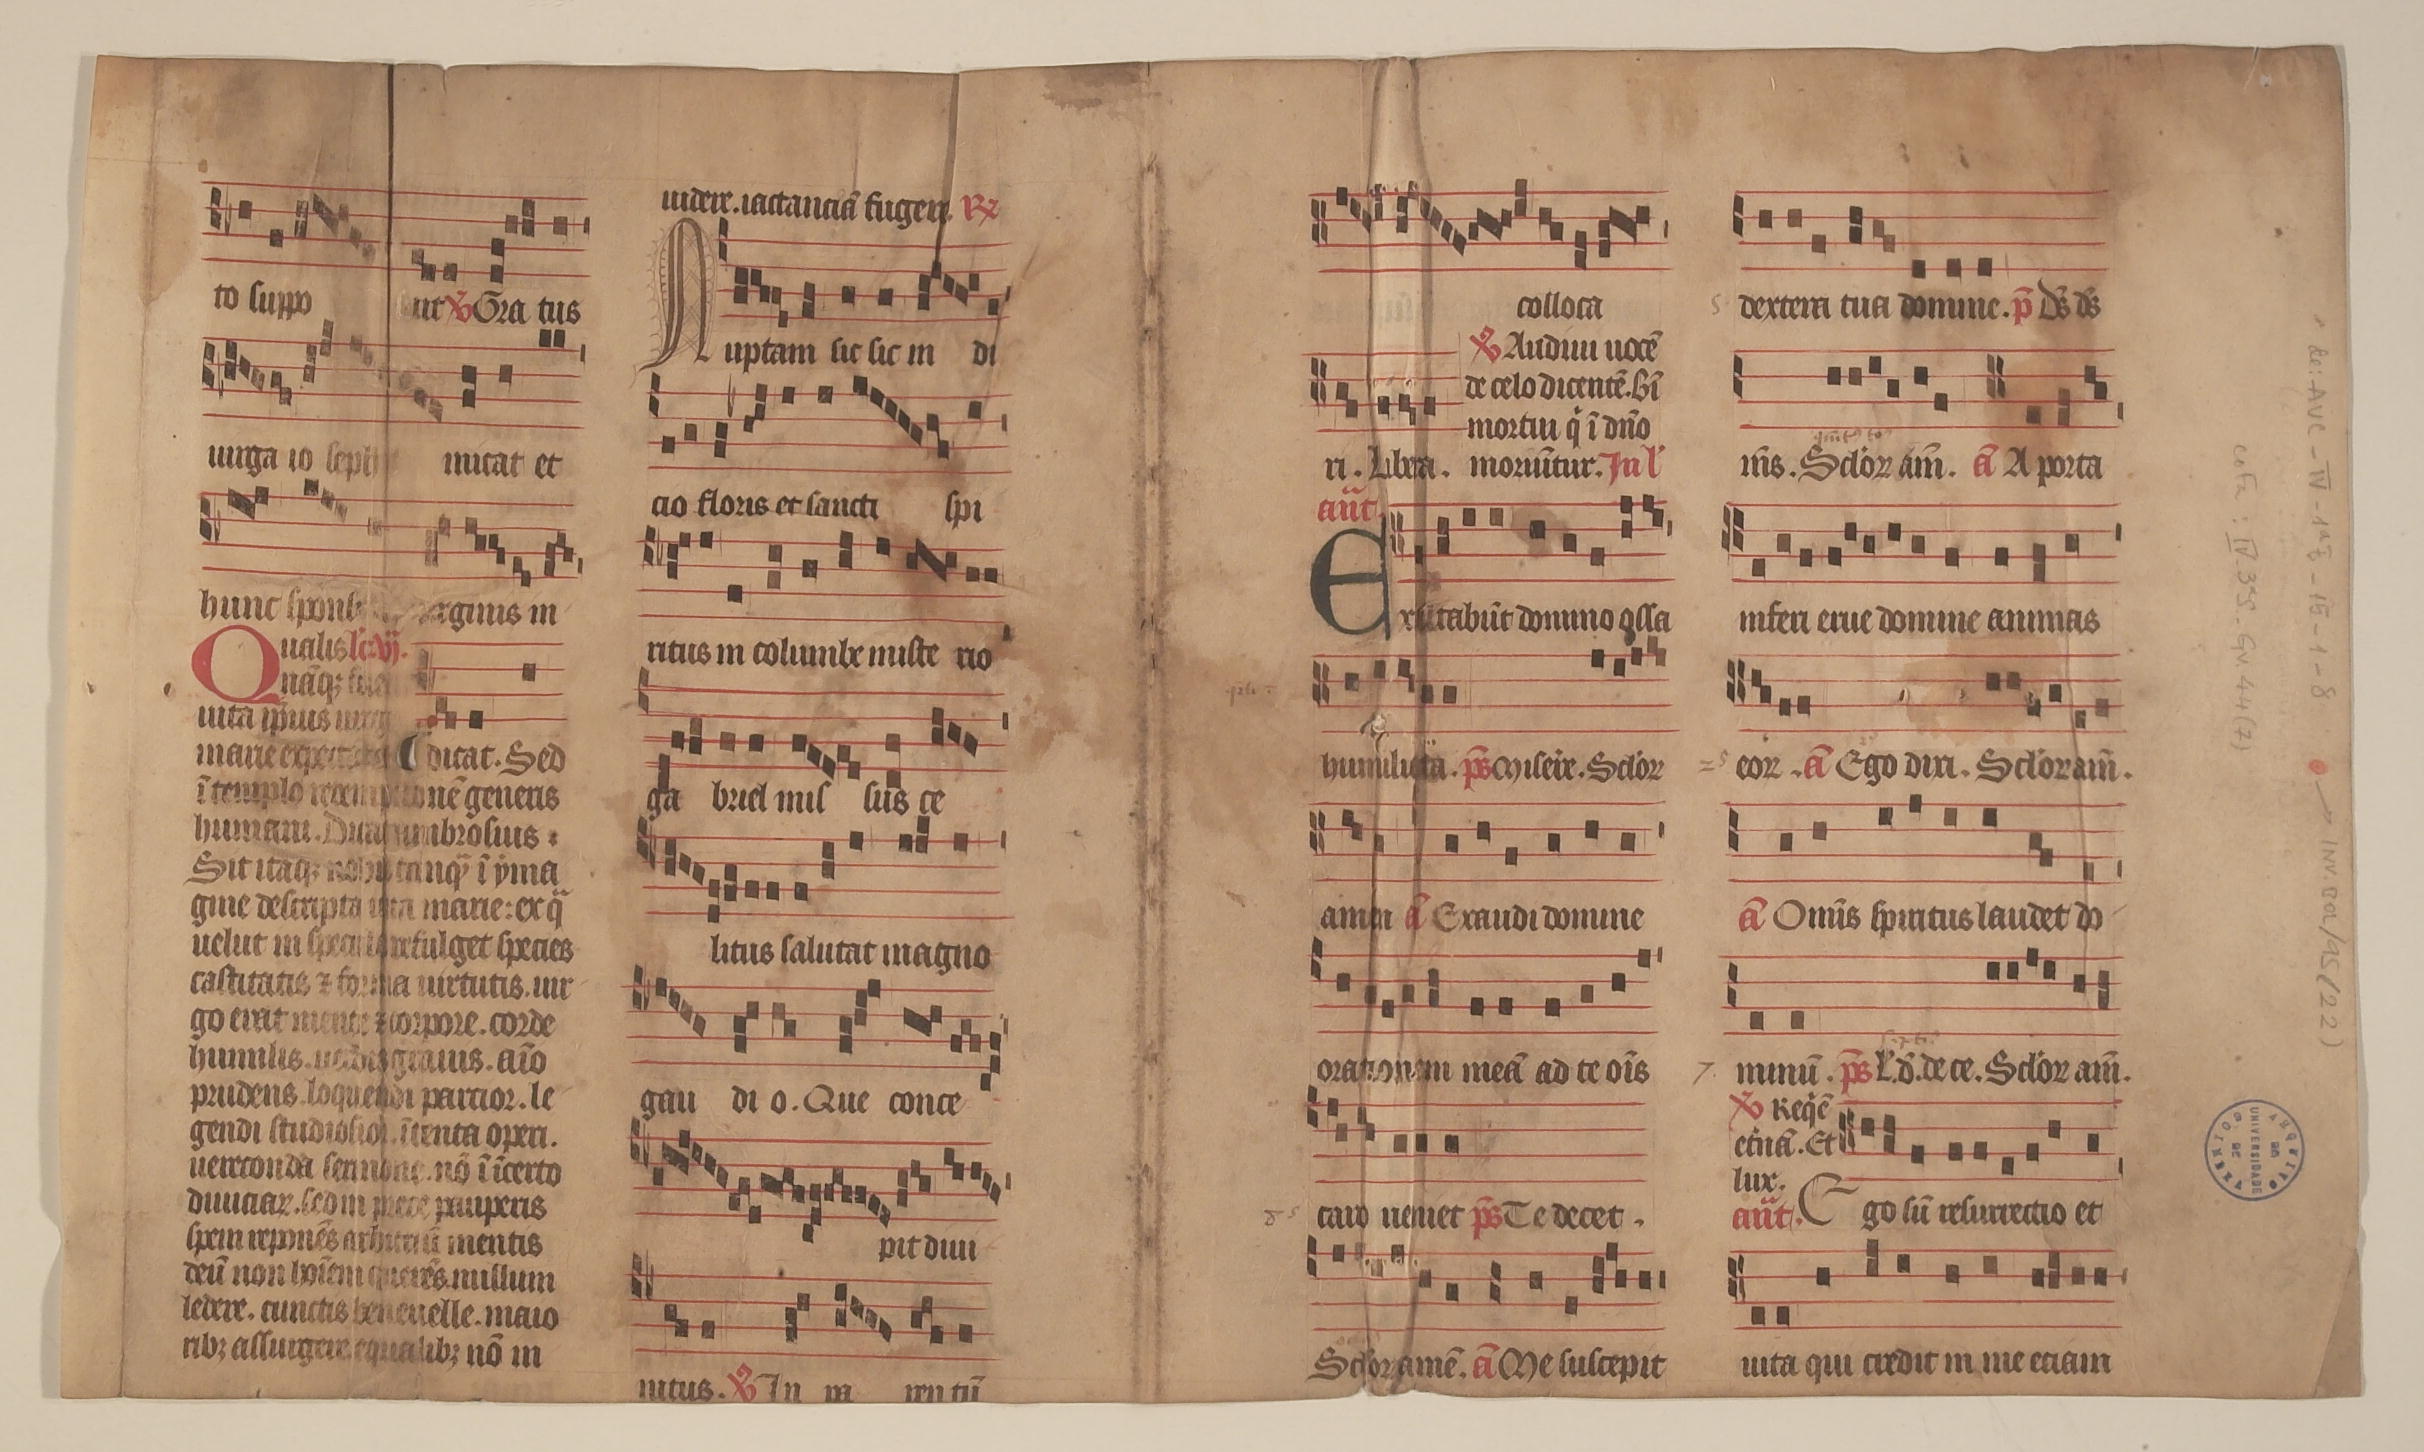 to suppo ut ꝟ Gra tus
uirga io seph micat et
hunc spons uirginis in
Qualis lc̄ vij.
uita ip̄ius uirg
marie expectata dicat. Sed
ī templo redemptionē generis
humani. Diui ambrosius
Sit itaq; nobis tanq̄ ī yma
gine descripta uita marie: ex q̄
uelut in speculo refulget species
castitatis ⁊ forma uirtutis. uir
go erat mente ⁊ corpore. corde
humilis. uerbis grauis. aīo
prudens. loquendi parcior. le
gendi studiosior. ītenta operi.
uereconda sermone. nō ī īcerto
diuiciar̄. sed in prece pauperis
spem reponēs arbitriū mentis
deū non hoīem querēs. nullum
ledere. cunctis beneuelle. maio
rib; assurgere. equalib; nō in
uidere. iactanciā fugere. R̸
Nuptam sic sic in di
cio floris et sancti spi
ritus in columbe miste rio
ga briel mis sus ce
litus salutat magno
gau di o. Que conce
pit diui
nitus. ꝟ In pa ren tū
colloca
ꝟ Audiui uocē
de celo dicentē. bī
mortui q̄ ī dn̄o
ri. Libera. moriūtur. In l'
aūt.
Exultabūt domino ossa
humiliata. ps̄ Miseire. Sclōꝝ
amen ā Exaudi domine
orationem meā ad te oīs
caro ueniet ps̄ Te decet.
Sclōꝝ amē. ā Me suscepit
dextera tua domine. p̄ Ds̄ ds̄
ms̄. Sclōꝝ am̄. ā A porta
inferi erue domine animas
eoꝝ. ā Ego dixi. Sclōꝝ am̄.
ā Omīs spiritus laudet do
minū. ps̄ L. d. de ce. Sclōꝝ am̄.
ꝟ Req̄ē
et̄nā. Et
lux.
aūt. Ego sū resurrectio et
uita qui credit in me eciam
de: AUC-IV-1ªE-15-1-8
cota: IV.3ªS.Gv44(7)
INV.DOC/95(22)
ARQUIVO DA UNIVERSIDADE DE COIMBRA